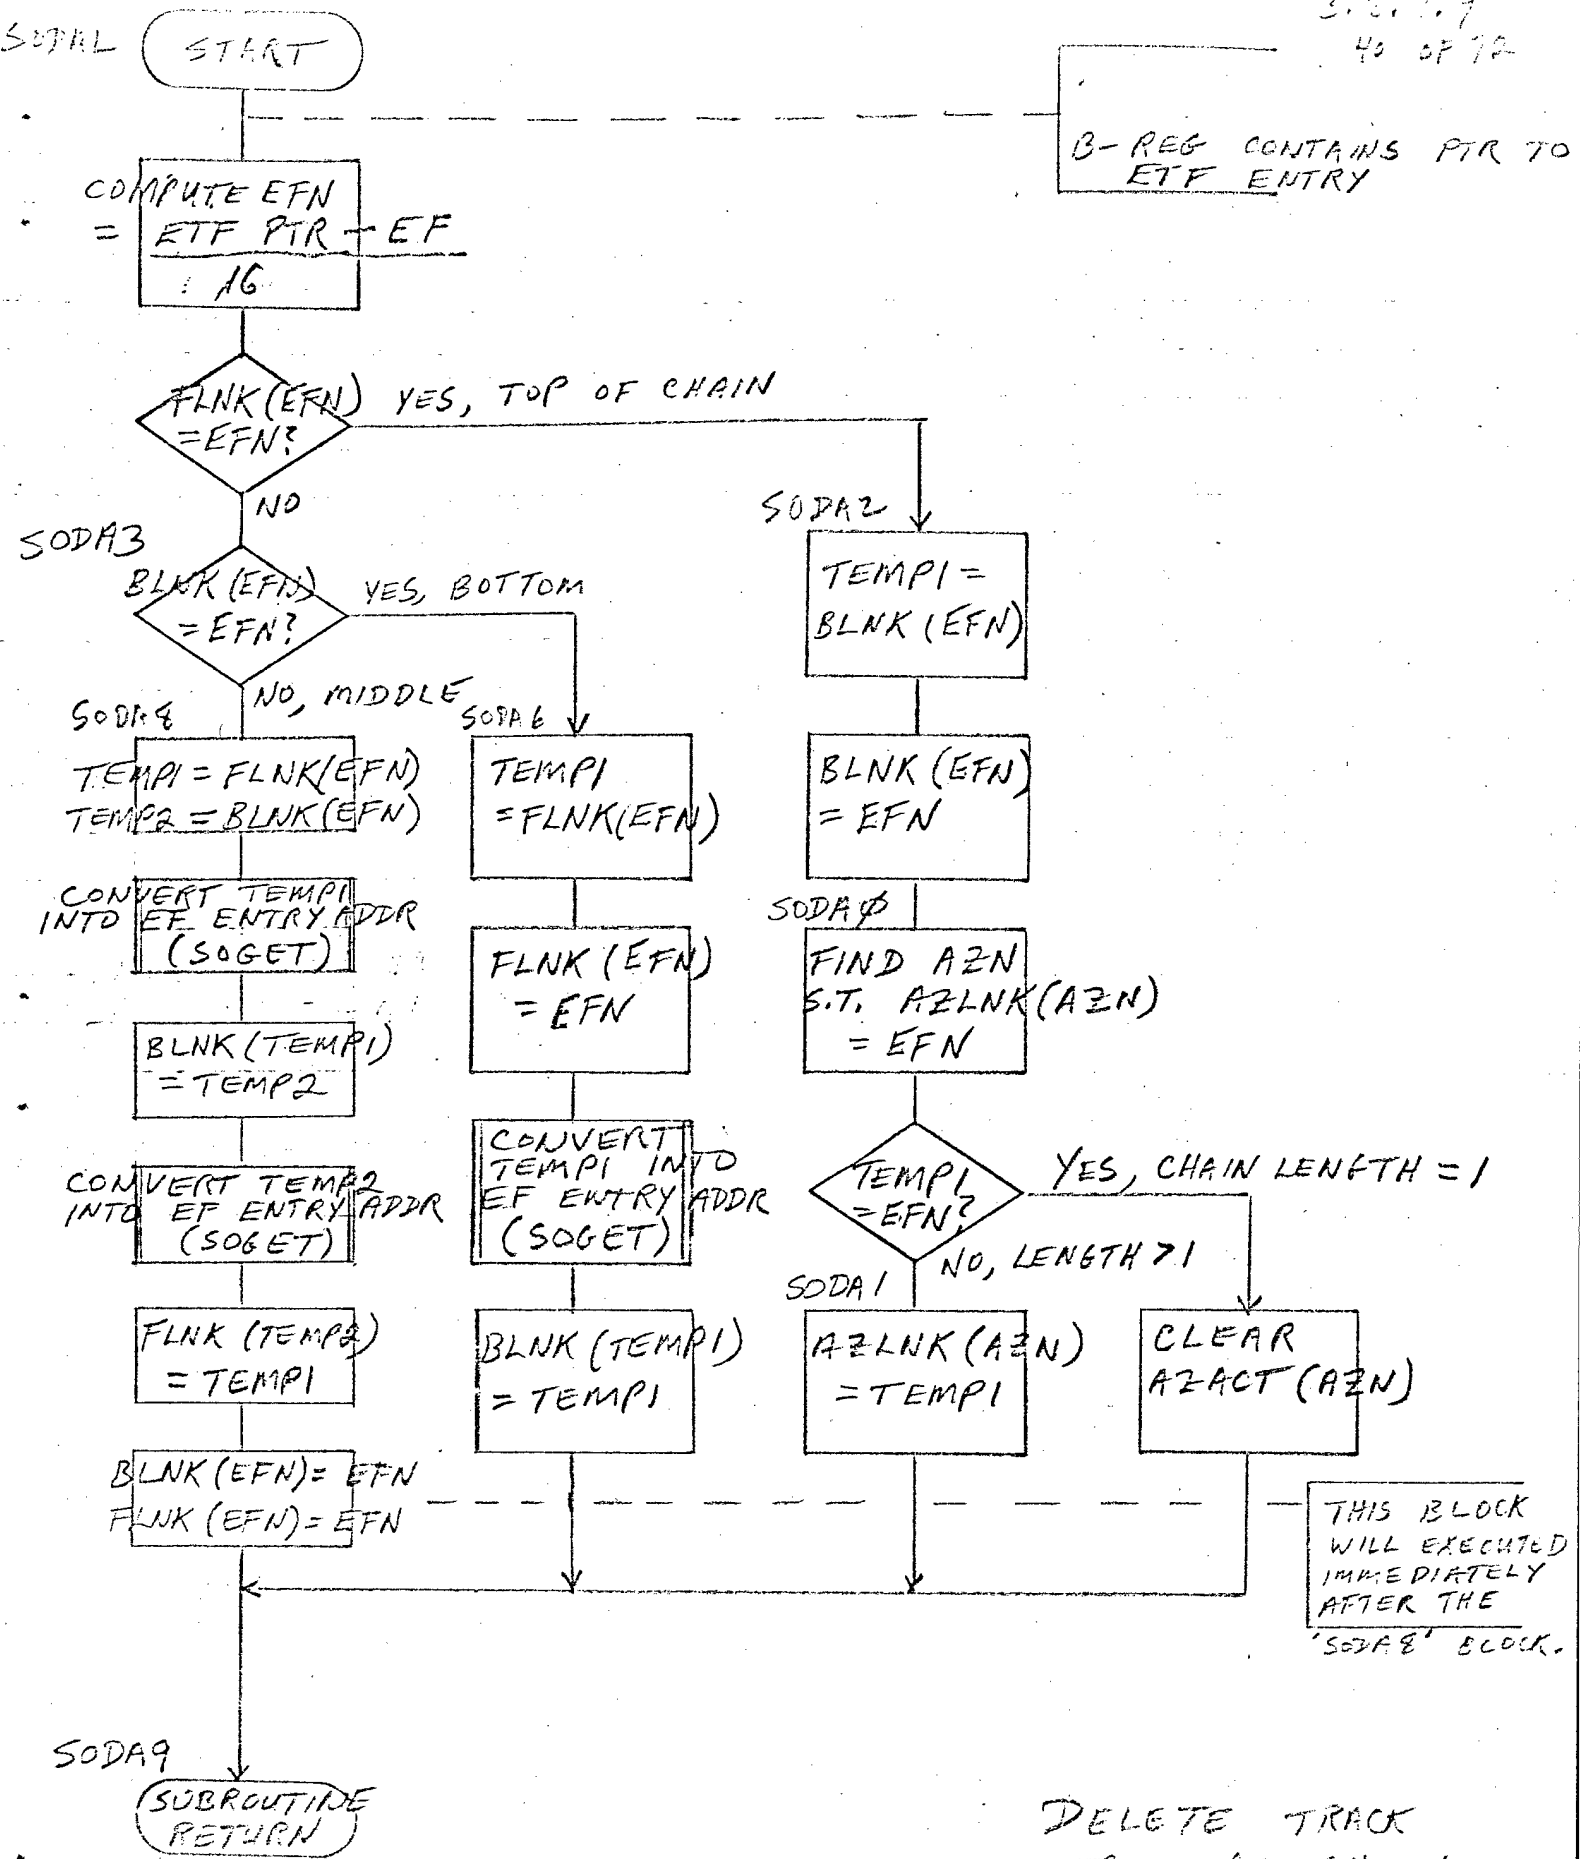 SODAL
START
40 OF 72
B-REG CONTAINS PTR TO
ETF ENTRY
COMPUTE EFN
= ETF PTR - EF
16
FLNK(EFN)
=EFN?
YES, TOP OF CHAIN
NO
SODA3
BLNK(EFN)
=EFN?
YES, BOTTOM
NO, MIDDLE
SODA2
TEMP1 =
BLNK(EFN)
BLNK(EFN)
= EFN
SODA8
TEMP1 = FLNK(EFN)
TEMP2 = BLNK(EFN)
CONVERT TEMP1
INTO EF ENTRY ADDR
(SOGET)
BLNK(TEMP1)
= TEMP2
CONVERT TEMP2
INTO EF ENTRY ADDR
(SOGET)
FLNK (TEMP2)
= TEMP1
BLNK(EFN)= EFN
FLNK(EFN)= EFN
SODA6
TEMP1
=FLNK(EFN)
FLNK(EFN)
= EFN
CONVERT
TEMP1 INTO
EF ENTRY ADDR
(SOGET)
BLNK(TEMP1)
= TEMP1
SODAØ
FIND AZN
S.T. AZLNK(AZN)
= EFN
TEMP1
=EFN?
YES, CHAIN LENGTH = 1
NO, LENGTH > 1
SODA1
AZLNK(AZN)
= TEMP1
CLEAR
AZACT(AZN)
THIS BLOCK
WILL EXECUTED
IMMEDIATELY
AFTER THE
'SODA8' BLOCK.
SODA9
SUBROUTINE
RETURN
DELETE TRACK